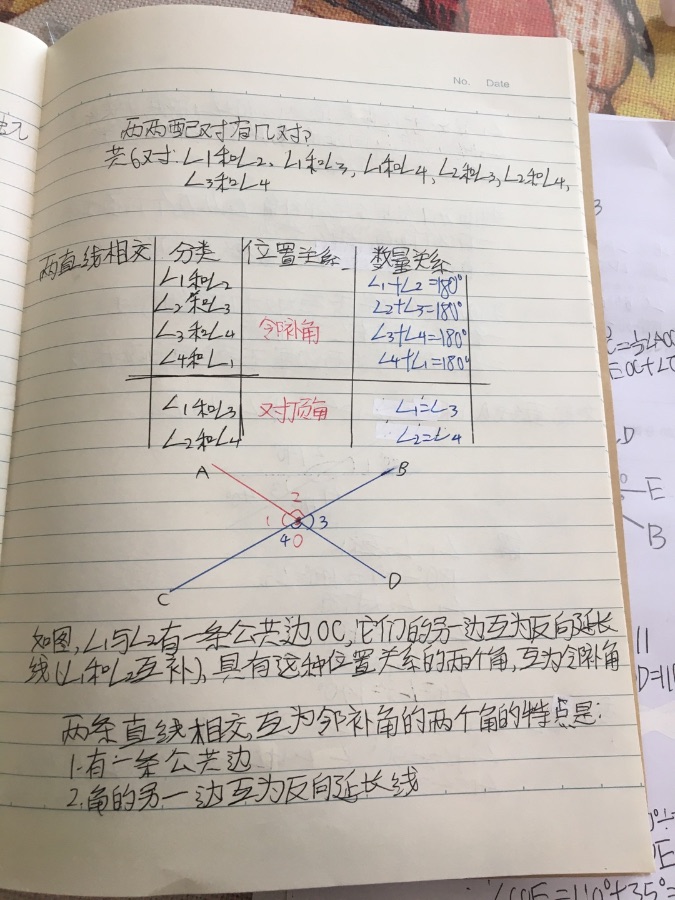 No. Date
两两配对有几对?
共6对:∠1和∠2、∠1和∠3,∠1和∠4,∠2和∠3,∠2和∠4,
∠3和∠4
两直线相交 分类 位置关系 数量关系
∠1和∠2 ∠1+∠2=180°
∠2和∠3 ∠2+∠3=180°
∠3和∠4 邻补角 ∠3+∠4=180°
∠4和∠1 ∠4+∠1=180°
∠1和∠3 对顶角 ∠1=∠3
∠2和∠4 ∠2=∠4
A B
2
1 3
4 O
C D
如图,∠1与∠2有一条公共边OC,它们的另一边互为反向延长
线(∠1和∠2互补),具有这种位置关系的两个角,互为邻补角
两条直线相交,互为邻补角的两个角的特点是:
1.有一条公共边
2.角的另一边互为反向延长线
3
D
E
B
11
D=11
∠COE=110°+35°=